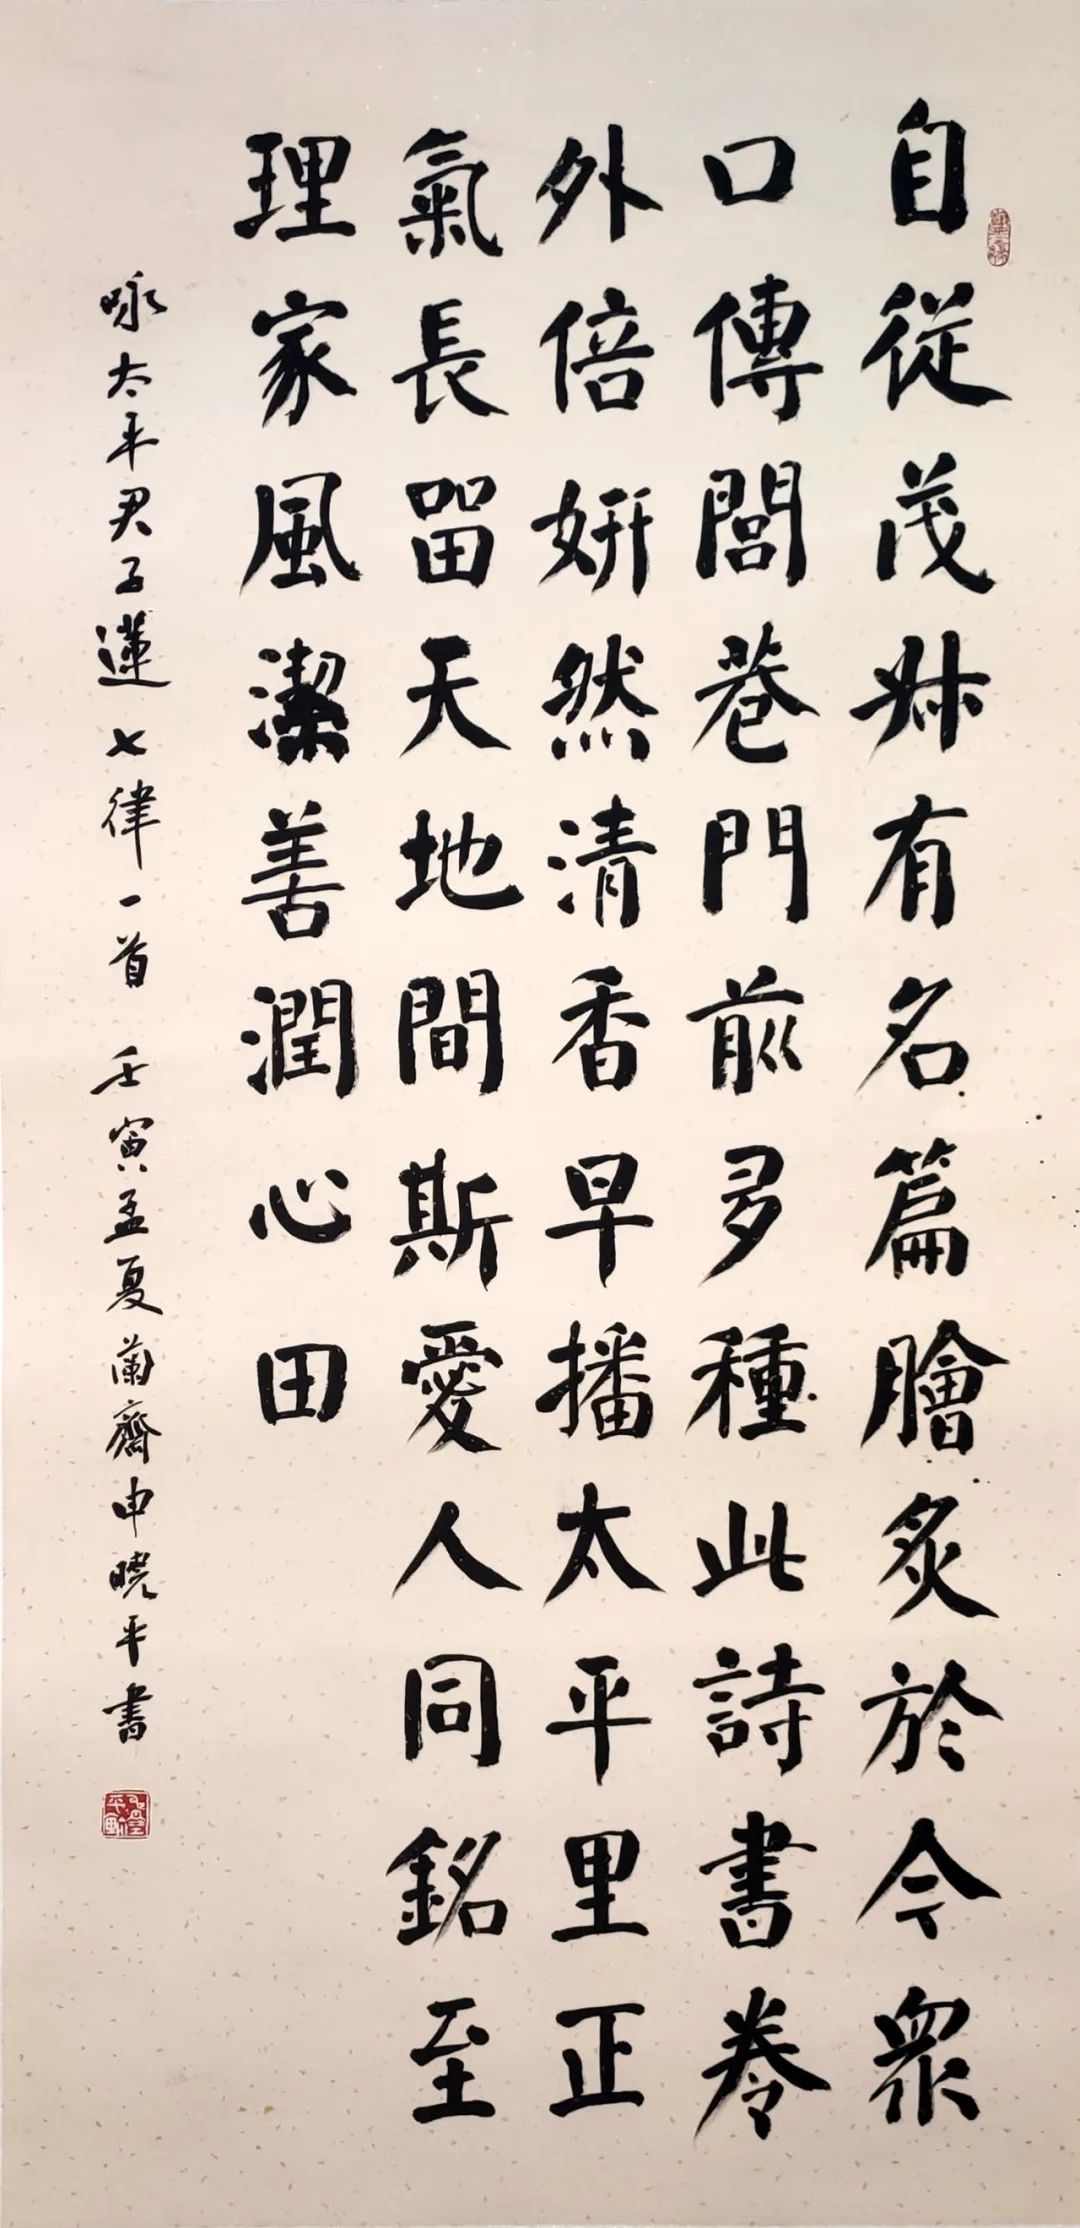 自從茂叔有名篇膾炙於今衆
口傳閭巷門前多種此詩書卷
外倍妍然清香早播太平里正
氣長留天地間斯愛人同銘至
理家風潔善潤心田
咏太平君子蓮七律一首 壬寅孟夏蘭齋申曉平書